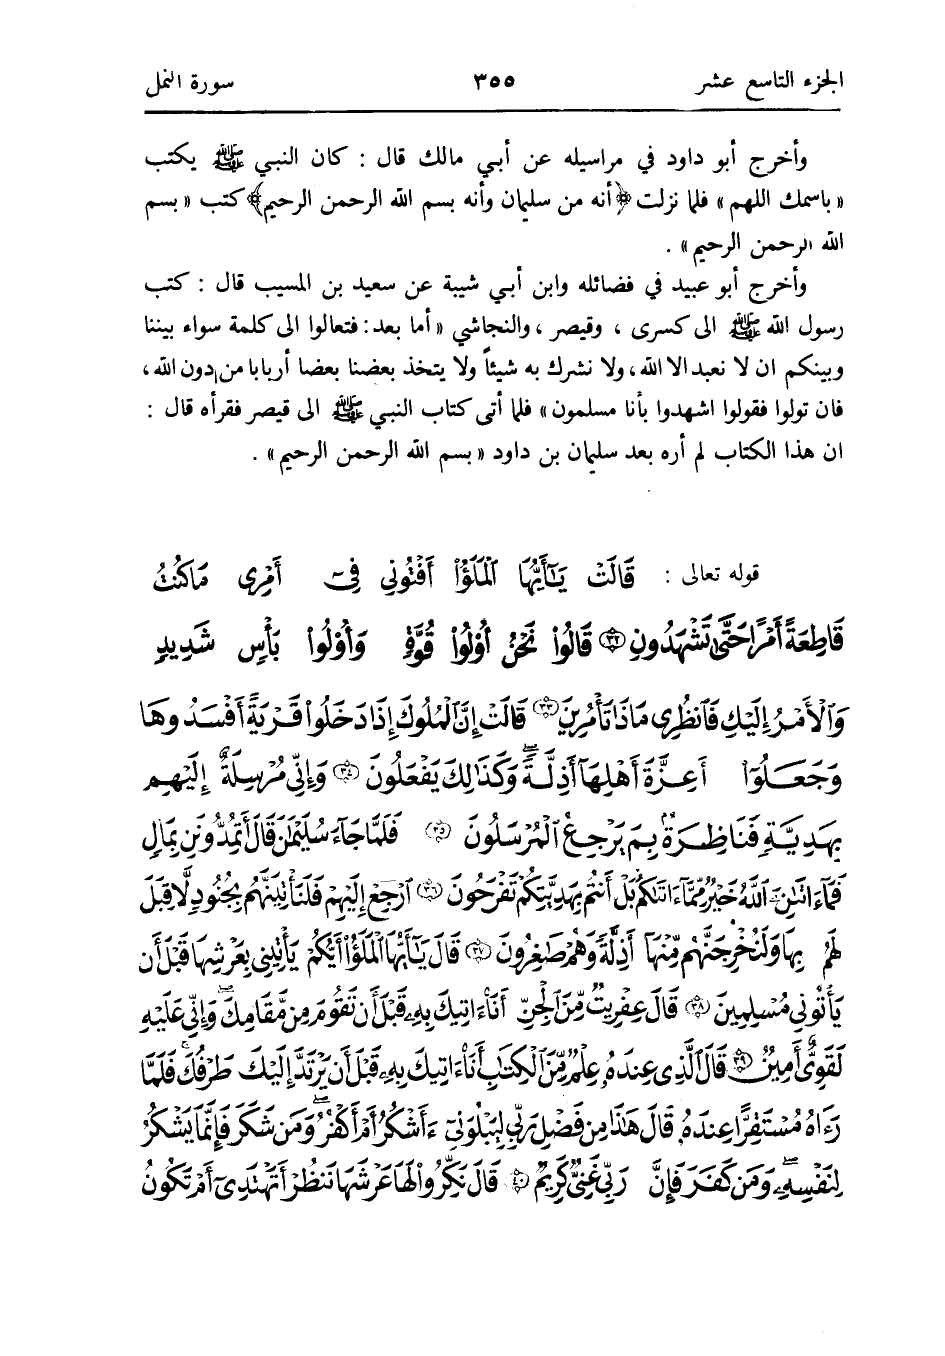 الجزء التاسع عشر ٣٥٥ سورة النمل
وأخرج أبو داود في مراسيله عن أبي مالك قال : كان النبي ﷺ يكتب
« باسمك اللهم » فلما نزلت ﴿أنه من سليمان وأنه بسم الله الرحمن الرحيم﴾ كتب « بسم
الله الرحمن الرحيم » .
وأخرج أبو عبيد في فضائله وابن أبي شيبة عن سعيد بن المسيب قال : كتب
رسول الله ﷺ الى كسرى ، وقيصر ، والنجاشي « أما بعد : فتعالوا الى كلمة سواء بيننا
وبينكم ان لا نعبد الا الله ، ولا نشرك به شيئاً ولا يتخذ بعضنا بعضا أربابا من دون الله ،
فان تولوا فقولوا اشهدوا بأنا مسلمون » فلما أتى كتاب النبي ﷺ الى قيصر فقرأه قال :
ان هذا الكتاب لم أره بعد سليمان بن داود « بسم الله الرحمن الرحيم » .
قوله تعالى : قَالَتْ يَٰٓأَيُّهَا ٱلْمَلَؤُا۟ أَفْتُونِى فِىٓ أَمْرِى مَا كُنتُ
قَاطِعَةً أَمْرًا حَتَّىٰ تَشْهَدُونِ ۝٣٢ قَالُوا۟ نَحْنُ أُو۟لُوا۟ قُوَّةٍ وَأُو۟لُوا۟ بَأْسٍ شَدِيدٍ
وَٱلْأَمْرُ إِلَيْكِ فَٱنظُرِى مَاذَا تَأْمُرِينَ ۝٣٣ قَالَتْ إِنَّ ٱلْمُلُوكَ إِذَا دَخَلُوا۟ قَرْيَةً أَفْسَدُوهَا
وَجَعَلُوٓا۟ أَعِزَّةَ أَهْلِهَآ أَذِلَّةً ۖ وَكَذَٰلِكَ يَفْعَلُونَ ۝٣٤ وَإِنِّى مُرْسِلَةٌ إِلَيْهِم
بِهَدِيَّةٍ فَنَاظِرَةٌۢ بِمَ يَرْجِعُ ٱلْمُرْسَلُونَ ۝٣٥ فَلَمَّا جَآءَ سُلَيْمَٰنَ قَالَ أَتُمِدُّونَنِ بِمَالٍ
فَمَآ ءَاتَىٰنِۦَ ٱللَّهُ خَيْرٌ مِّمَّآ ءَاتَىٰكُم بَلْ أَنتُم بِهَدِيَّتِكُمْ تَفْرَحُونَ ۝٣٦ ٱرْجِعْ إِلَيْهِمْ فَلَنَأْتِيَنَّهُم بِجُنُودٍ لَّا قِبَلَ
لَهُم بِهَا وَلَنُخْرِجَنَّهُم مِّنْهَآ أَذِلَّةً وَهُمْ صَٰغِرُونَ ۝٣٧ قَالَ يَٰٓأَيُّهَا ٱلْمَلَؤُا۟ أَيُّكُمْ يَأْتِينِى بِعَرْشِهَا قَبْلَ أَن
يَأْتُونِى مُسْلِمِينَ ۝٣٨ قَالَ عِفْرِيتٌ مِّنَ ٱلْجِنِّ أَنَا۠ ءَاتِيكَ بِهِۦ قَبْلَ أَن تَقُومَ مِن مَّقَامِكَ ۖ وَإِنِّى عَلَيْهِ
لَقَوِىٌّ أَمِينٌ ۝٣٩ قَالَ ٱلَّذِى عِندَهُۥ عِلْمٌ مِّنَ ٱلْكِتَٰبِ أَنَا۠ ءَاتِيكَ بِهِۦ قَبْلَ أَن يَرْتَدَّ إِلَيْكَ طَرْفُكَ ۚ فَلَمَّا
رَءَاهُ مُسْتَقِرًّا عِندَهُۥ قَالَ هَٰذَا مِن فَضْلِ رَبِّى لِيَبْلُوَنِىٓ ءَأَشْكُرُ أَمْ أَكْفُرُ ۖ وَمَن شَكَرَ فَإِنَّمَا يَشْكُرُ
لِنَفْسِهِۦ ۖ وَمَن كَفَرَ فَإِنَّ رَبِّى غَنِىٌّ كَرِيمٌ ۝٤٠ قَالَ نَكِّرُوا۟ لَهَا عَرْشَهَا نَنظُرْ أَتَهْتَدِىٓ أَمْ تَكُونُ